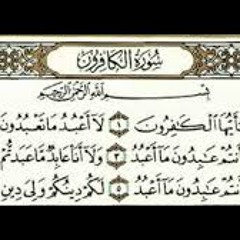 سُورَةُ الكَافِرُونَ
بِسْمِ اللَّهِ الرَّحْمَٰنِ الرَّحِيمِ
يَٰٓأَيُّهَا ٱلْكَٰفِرُونَ ١ لَآ أَعْبُدُ مَا تَعْبُدُونَ
أَنتُمْ عَٰبِدُونَ مَآ أَعْبُدُ ٣ وَلَآ أَنَا۠ عَابِدٌ مَّا عَبَدتُّمْ
أَنتُمْ عَٰبِدُونَ مَآ أَعْبُدُ ٥ لَكُمْ دِينُكُمْ وَلِىَ دِينِ